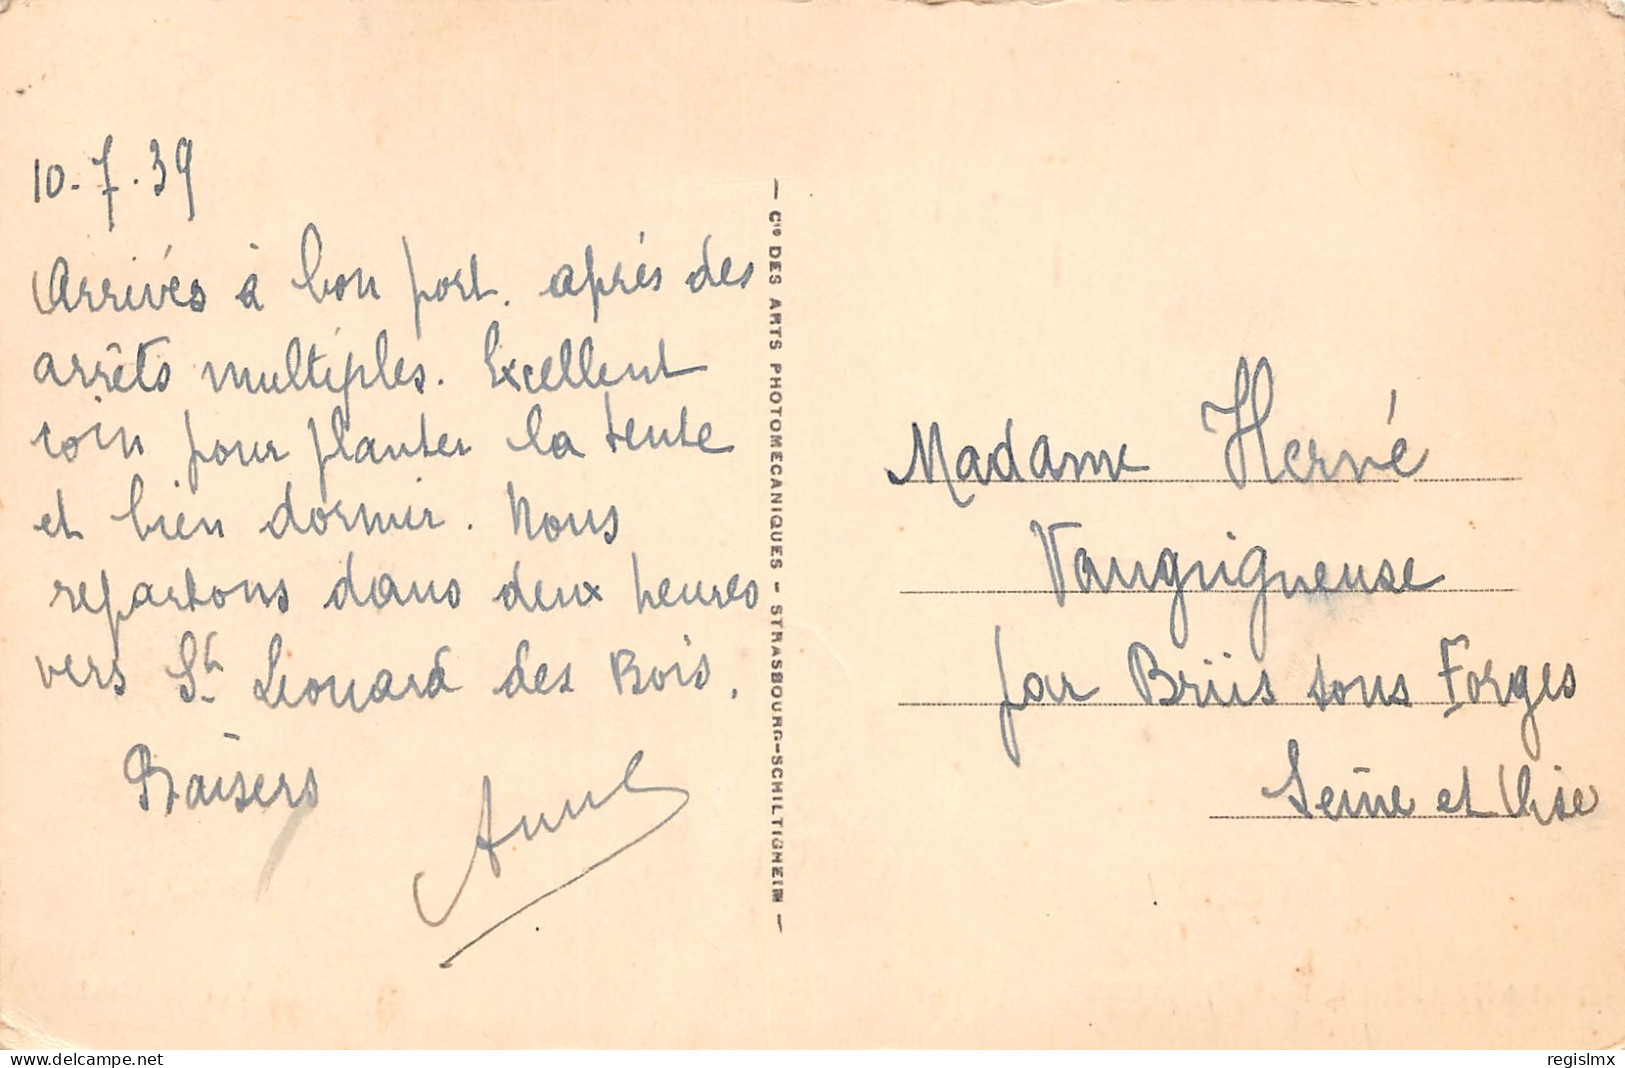 10.7.39
Arrivés à bon port. après des
arrêts multiples. Excellent
coin pour planter la tente
et bien dormir. Nous
repartons dans deux heures
vers St Léonard des Bois.
Baisers
Cie DES ARTS PHOTOMECANIQUES - STRASBOURG-SCHILTIGHEIM
Madame Hervé
Vaugrigneuse
par Briis sous Forges
Seine et Oise
delcampe.net
regislmx